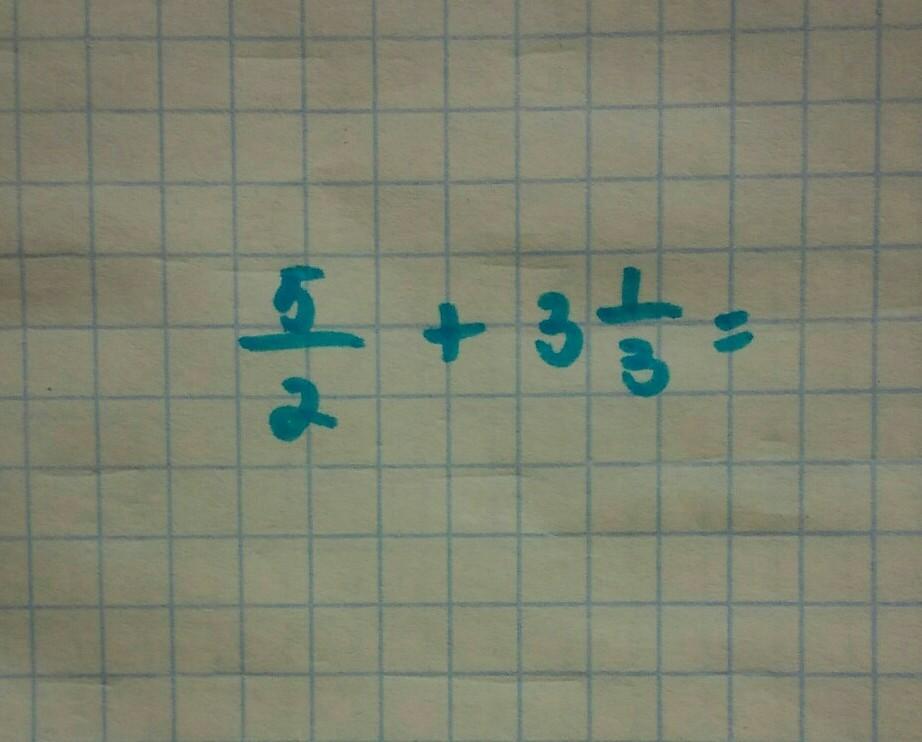 5/2 + 3 1/3 =